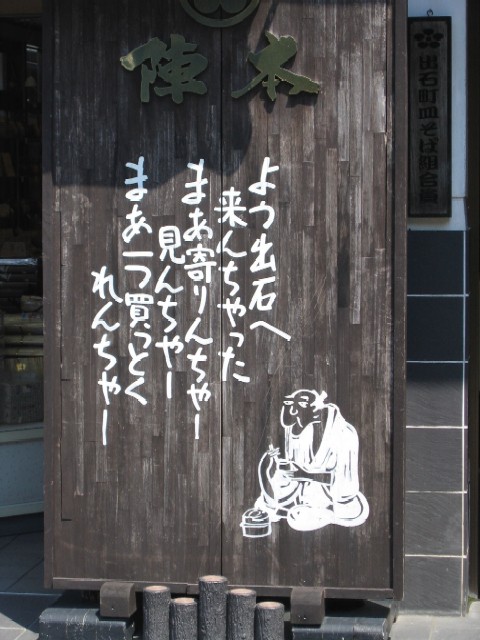 本陣
よう出石へ
来んちゃった
まあ寄りんちゃー
見んちゃー
まあ一つ買っとく
れんちゃー
出石町皿そば組合員